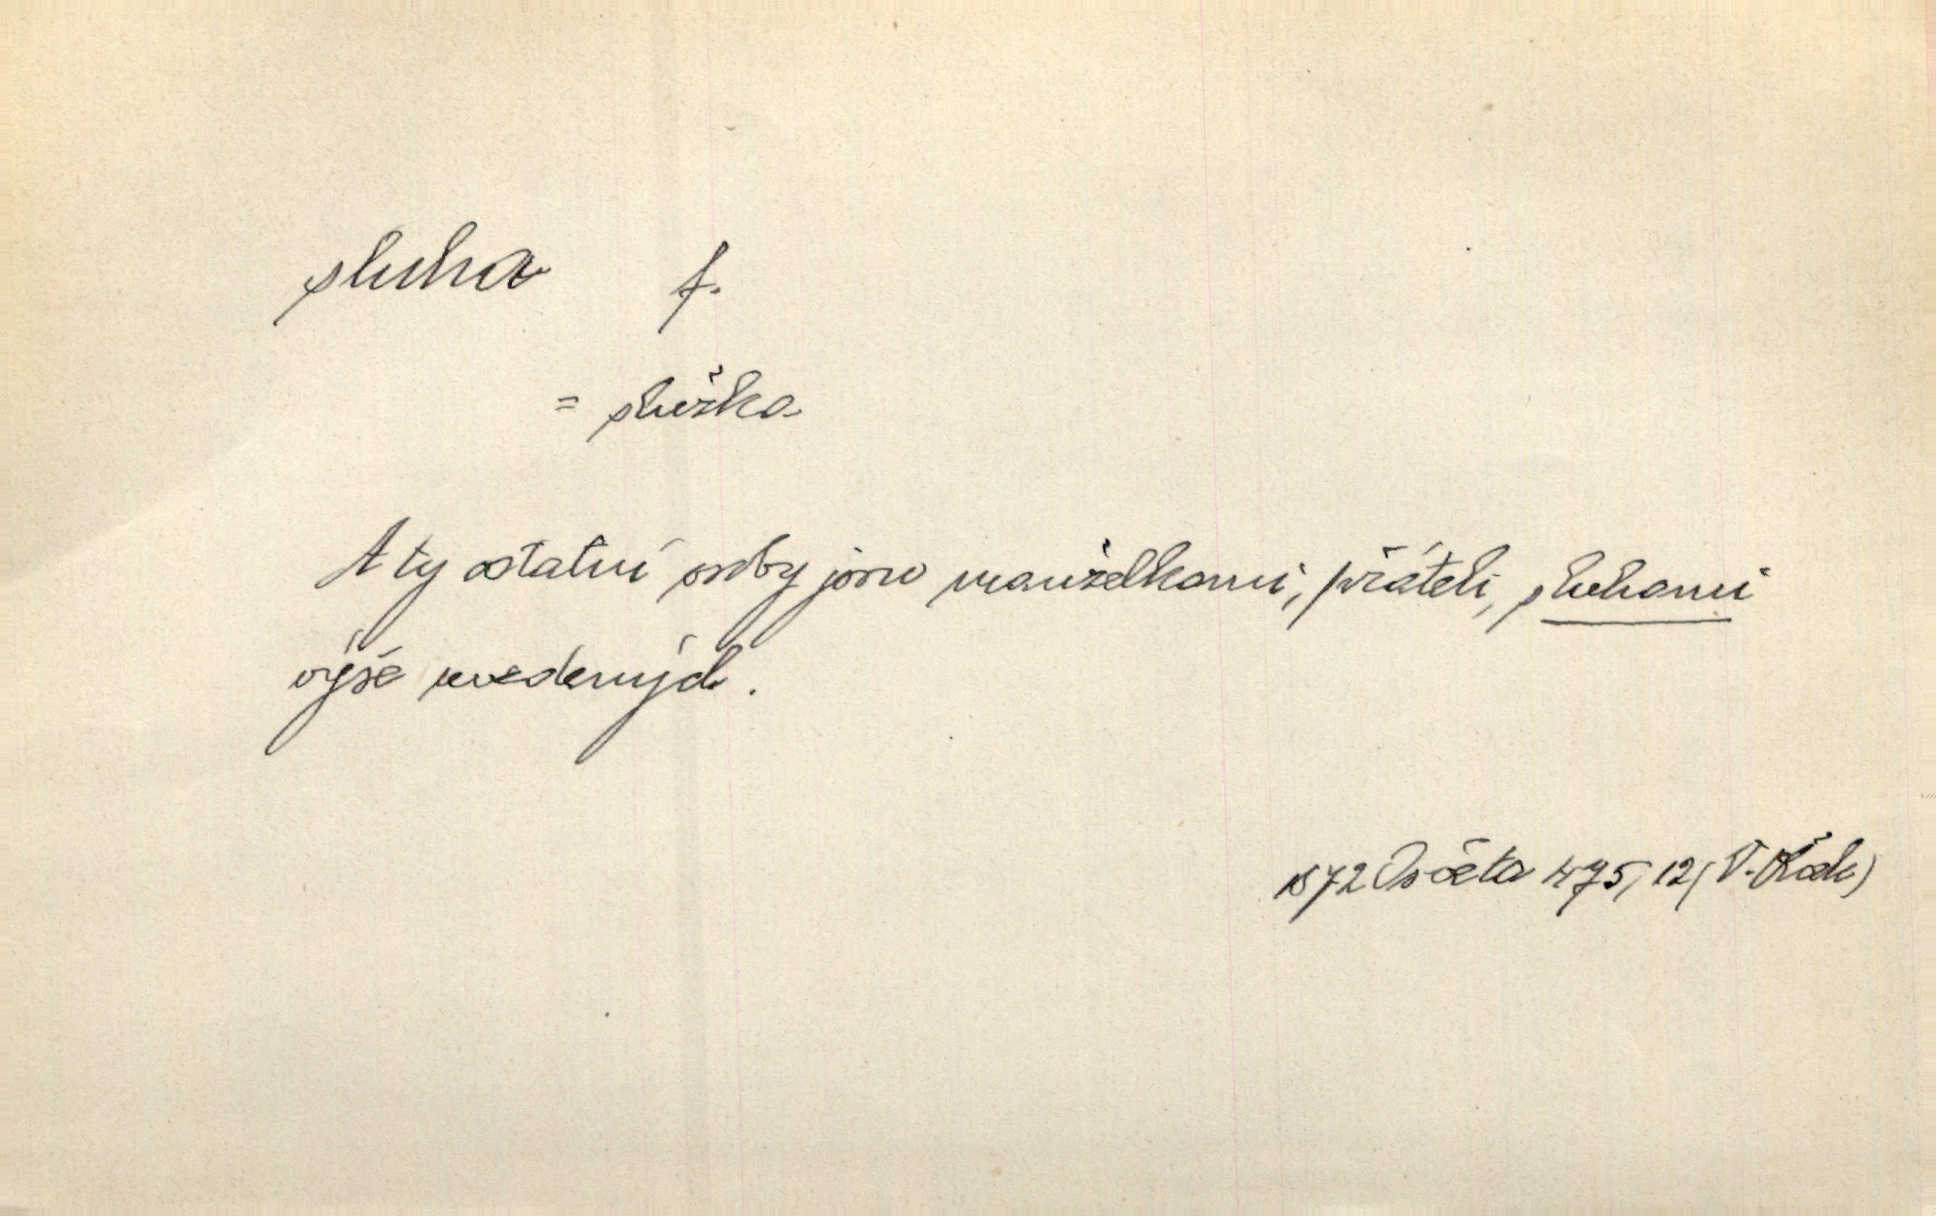 sluha f.
= služka
A ty ostatní osoby jsou manželkami, přáteli, sluhami
výše uvedených.
1872 Osvěta 475, 12 (V.